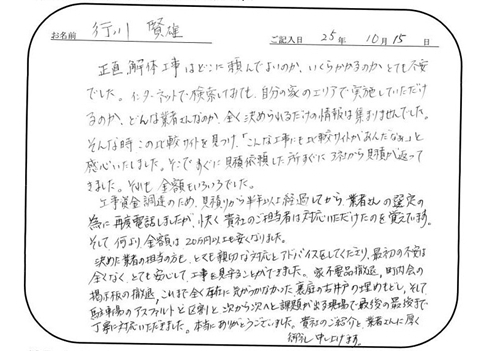 お名前 行川 賢雄 ご記入日 25年 10月 15日
正直、解体工事はどこに頼んでよいのか、いくらかかるのかとても不安
でした。インターネットで検索しても、自分の家のエリアで実施していただけ
るのか、どんな業者さんなのか、全く決められるだけの情報は集まりませんでした。
そんな時この比較サイトを見つけ、「こんな工事にも比較サイトがあんだなぁ」と
感心いたしました。そこですぐに見積依頼した所すぐに3社から見積が返って
きました。それも金額もいろいろでした。
工事資金調達のため、見積りから半年以上経過してから、業者さんの選定の
為に再度電話しましたが、快く貴社のご担当者は対応いただけたのを覚えています。
そして何より、金額は20万円以上も安くなりました。
決めた業者の担当の方も、とても親切な対応とアドバイスをしてくださり、最初の不安は
全くなく、とても安心して工事を見守ることができました。家不用品撤退、町内会の
掲示板の撤退、これまで全く存在に気がつかなかった裏庭の古井戸の埋めもどし、そして
駐車場のアスファルトと区割と次から次へと課題が出る現場で最後の最後まで
丁寧に対応いただきました。本当にありがとうございました。貴社のご紹介と業者さんに厚く
御礼申し上げます。